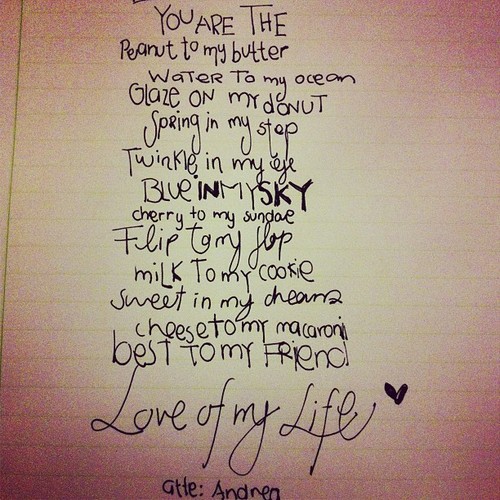 YOU ARE THE
Peanut to my butter
WATER TO my ocean
GLAZE ON my DONUT
Spring in my step
Twinkle in my eye
BLUE IN MY SKY
cherry to my sundae
Flip to my flop
MILK TO my COOKIE
sweet in my dreams
cheese to my macaroni
BEST TO MY FRIEND
Love of my Life
atte: Andrea